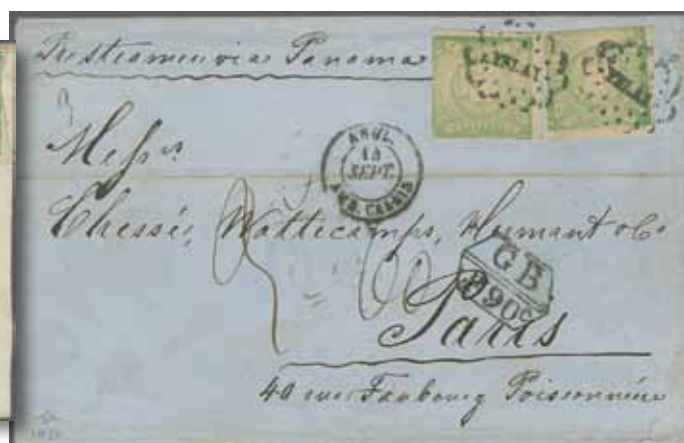 Per steamer via Panama
Messrs
Chessé, Wattecamps, Humant & Co
Paris
40 rue Faubourg Poissonnière
ANGL.
15
SEPT.
AMB. CALAIS
GB
1F90c